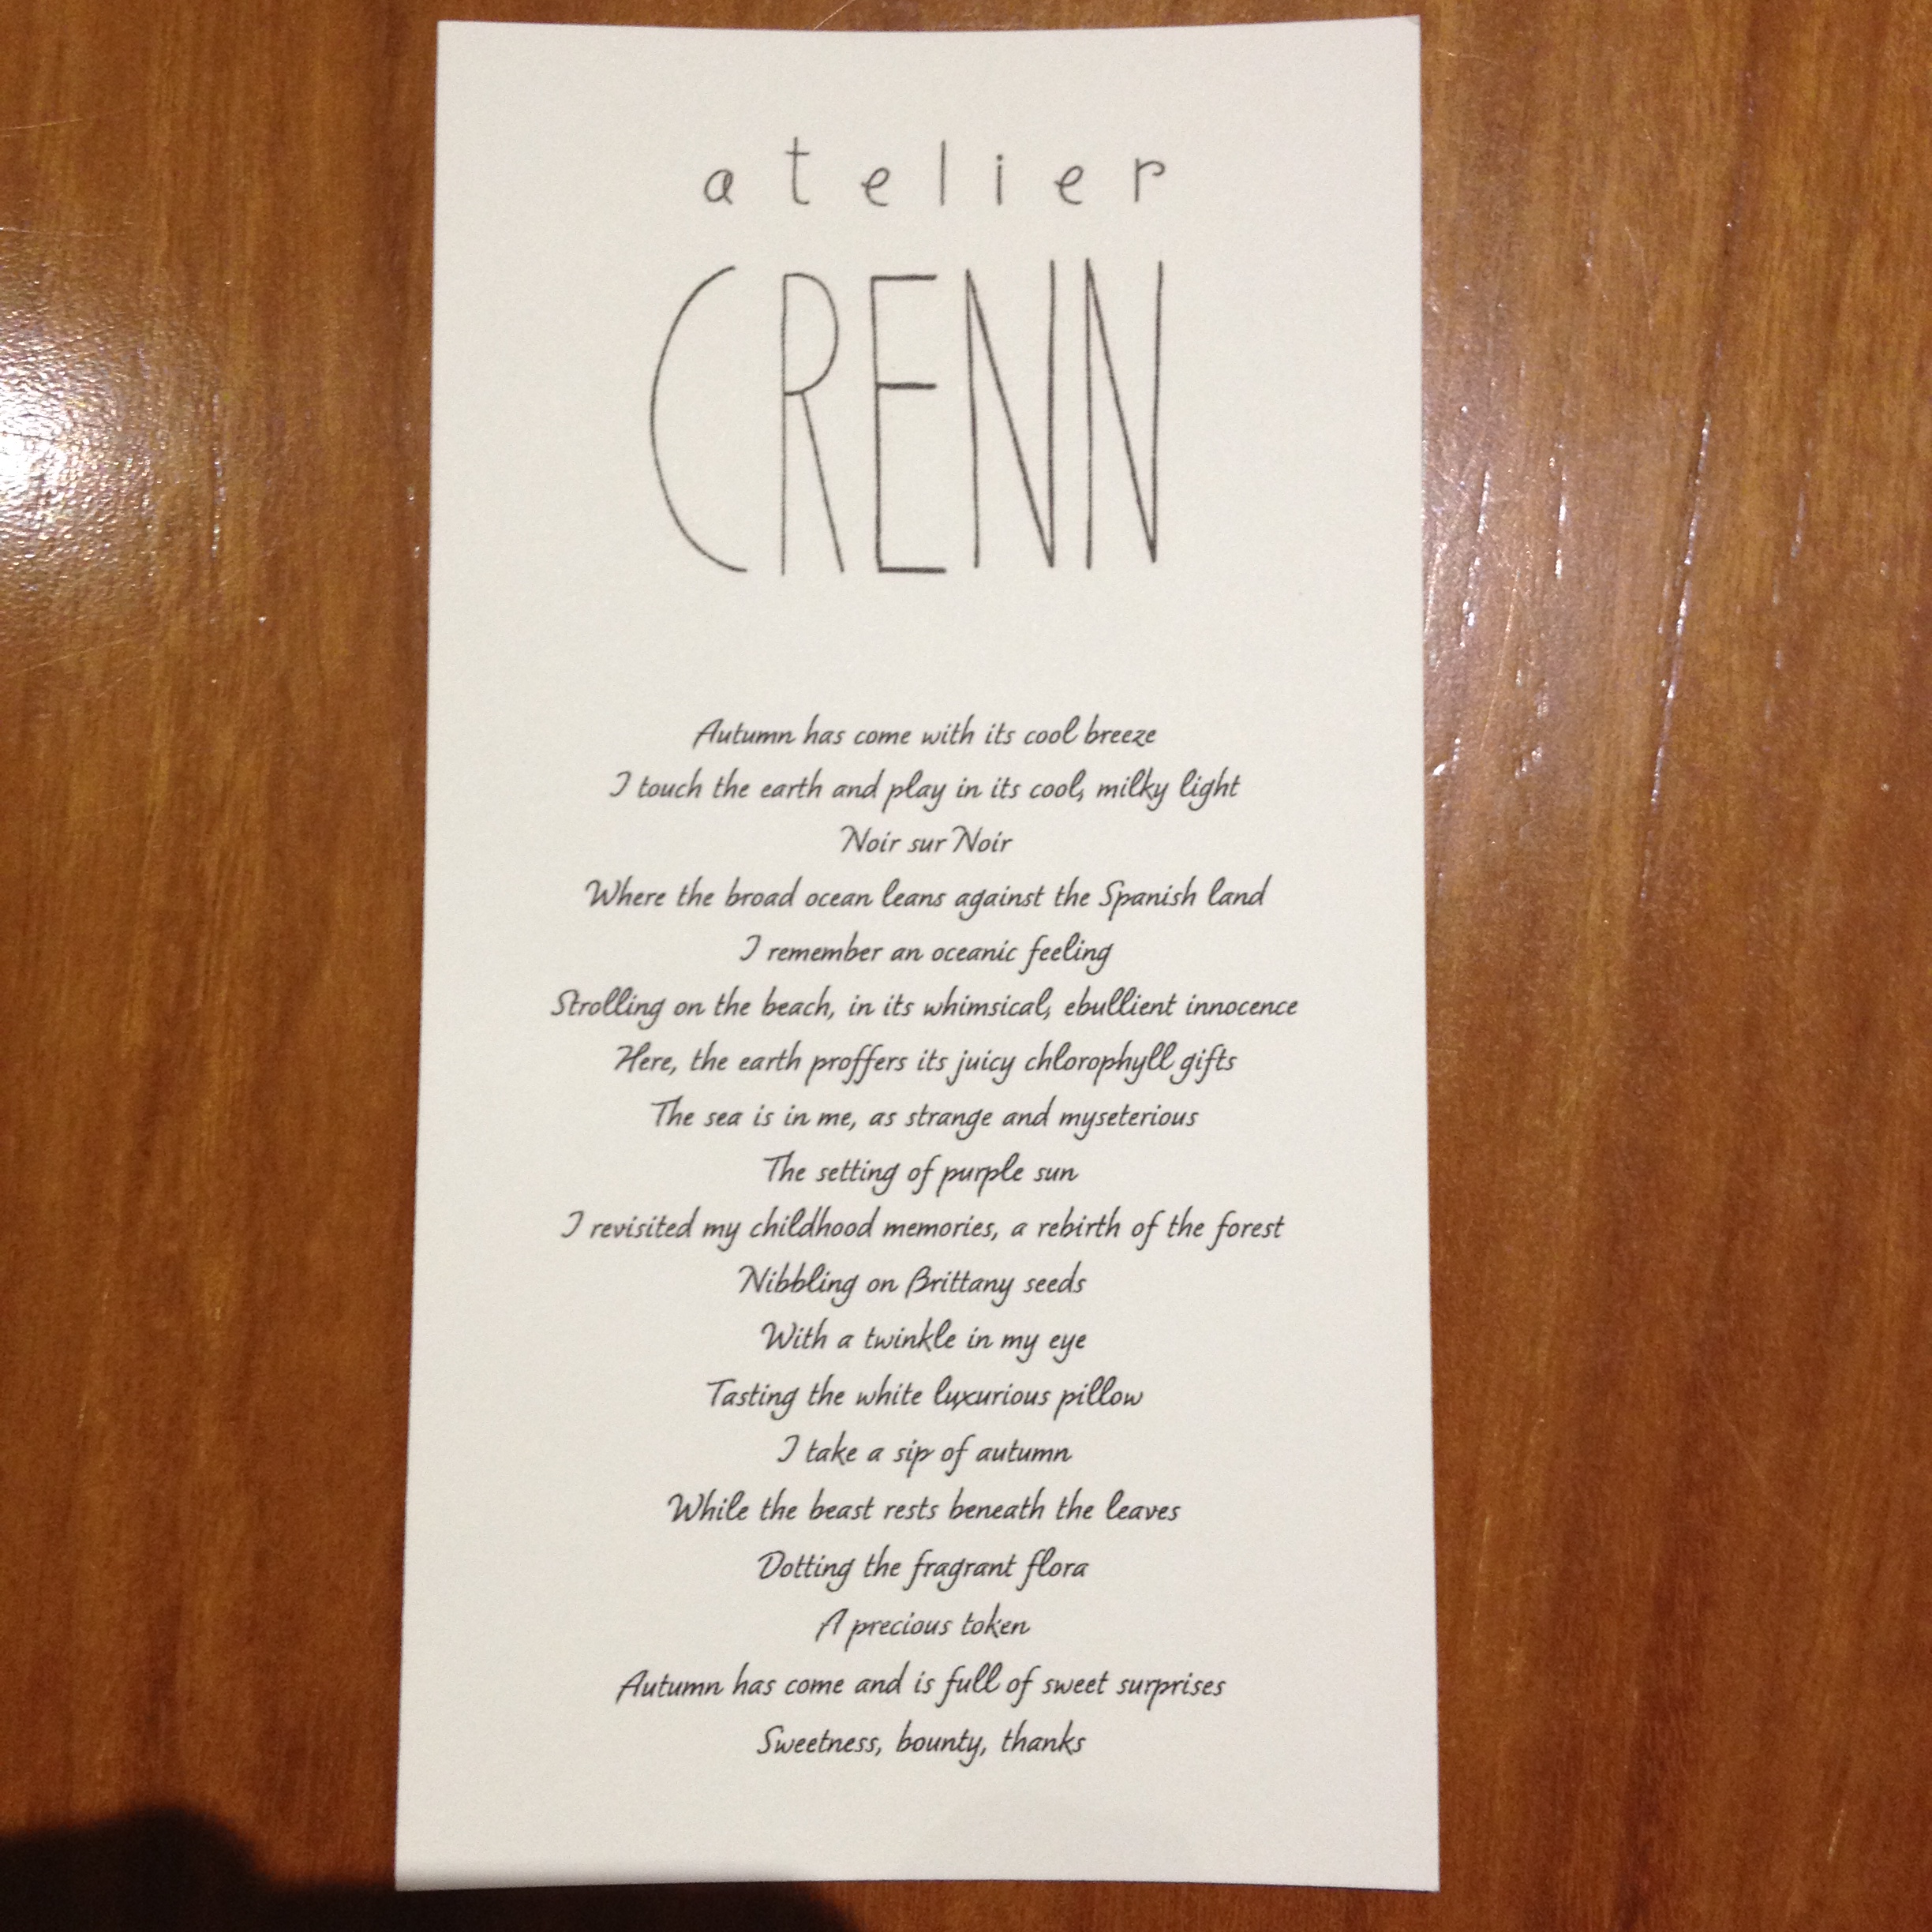 atelier
CRENN
Autumn has come with its cool breeze
I touch the earth and play in its cool, milky light
Noir sur Noir
Where the broad ocean leans against the Spanish land
I remember an oceanic feeling
Strolling on the beach, in its whimsical, ebullient innocence
Here, the earth proffers its juicy chlorophyll gifts
The sea is in me, as strange and myseterious
The setting of purple sun
I revisited my childhood memories, a rebirth of the forest
Nibbling on Brittany seeds
With a twinkle in my eye
Tasting the white luxurious pillow
I take a sip of autumn
While the beast rests beneath the leaves
Dotting the fragrant flora
A precious token
Autumn has come and is full of sweet surprises
Sweetness, bounty, thanks